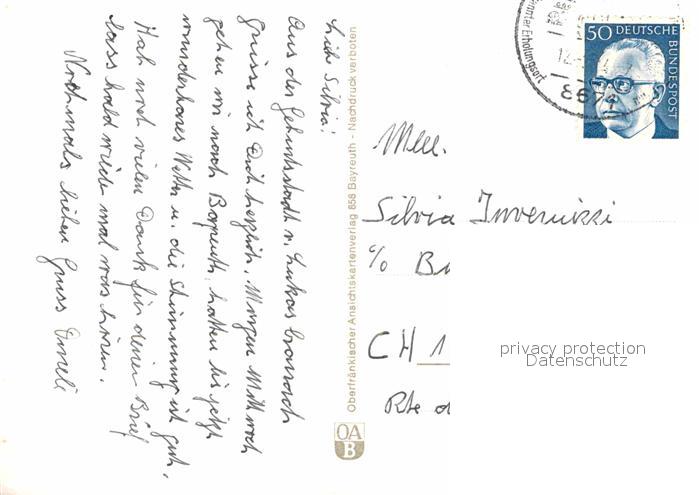 Liebe Silvia!
Aus der Geburtsstadt v. Lukas Cranach
grüsse ich Dich herzlich. Morgen Mittwoch
gehen wir nach Bayreuth, hatten bis jetzt
wunderbares Wetter u. die Stimmung ist gut,
Hab noch vielen Dank für deinen Brief
lass bald wieder mal was hören.
Nochmals lieben Gruss
Oberfränkischer Ansichtskartenverlag 858 Bayreuth - Nachdruck verboten
OA
B
Erholungsort
12.
8671
50 DEUTSCHE
BUNDESPOST
Mlle.
Silvia Invernizzi
c/o B
CH 1
Rte d
privacy protection
Datenschutz